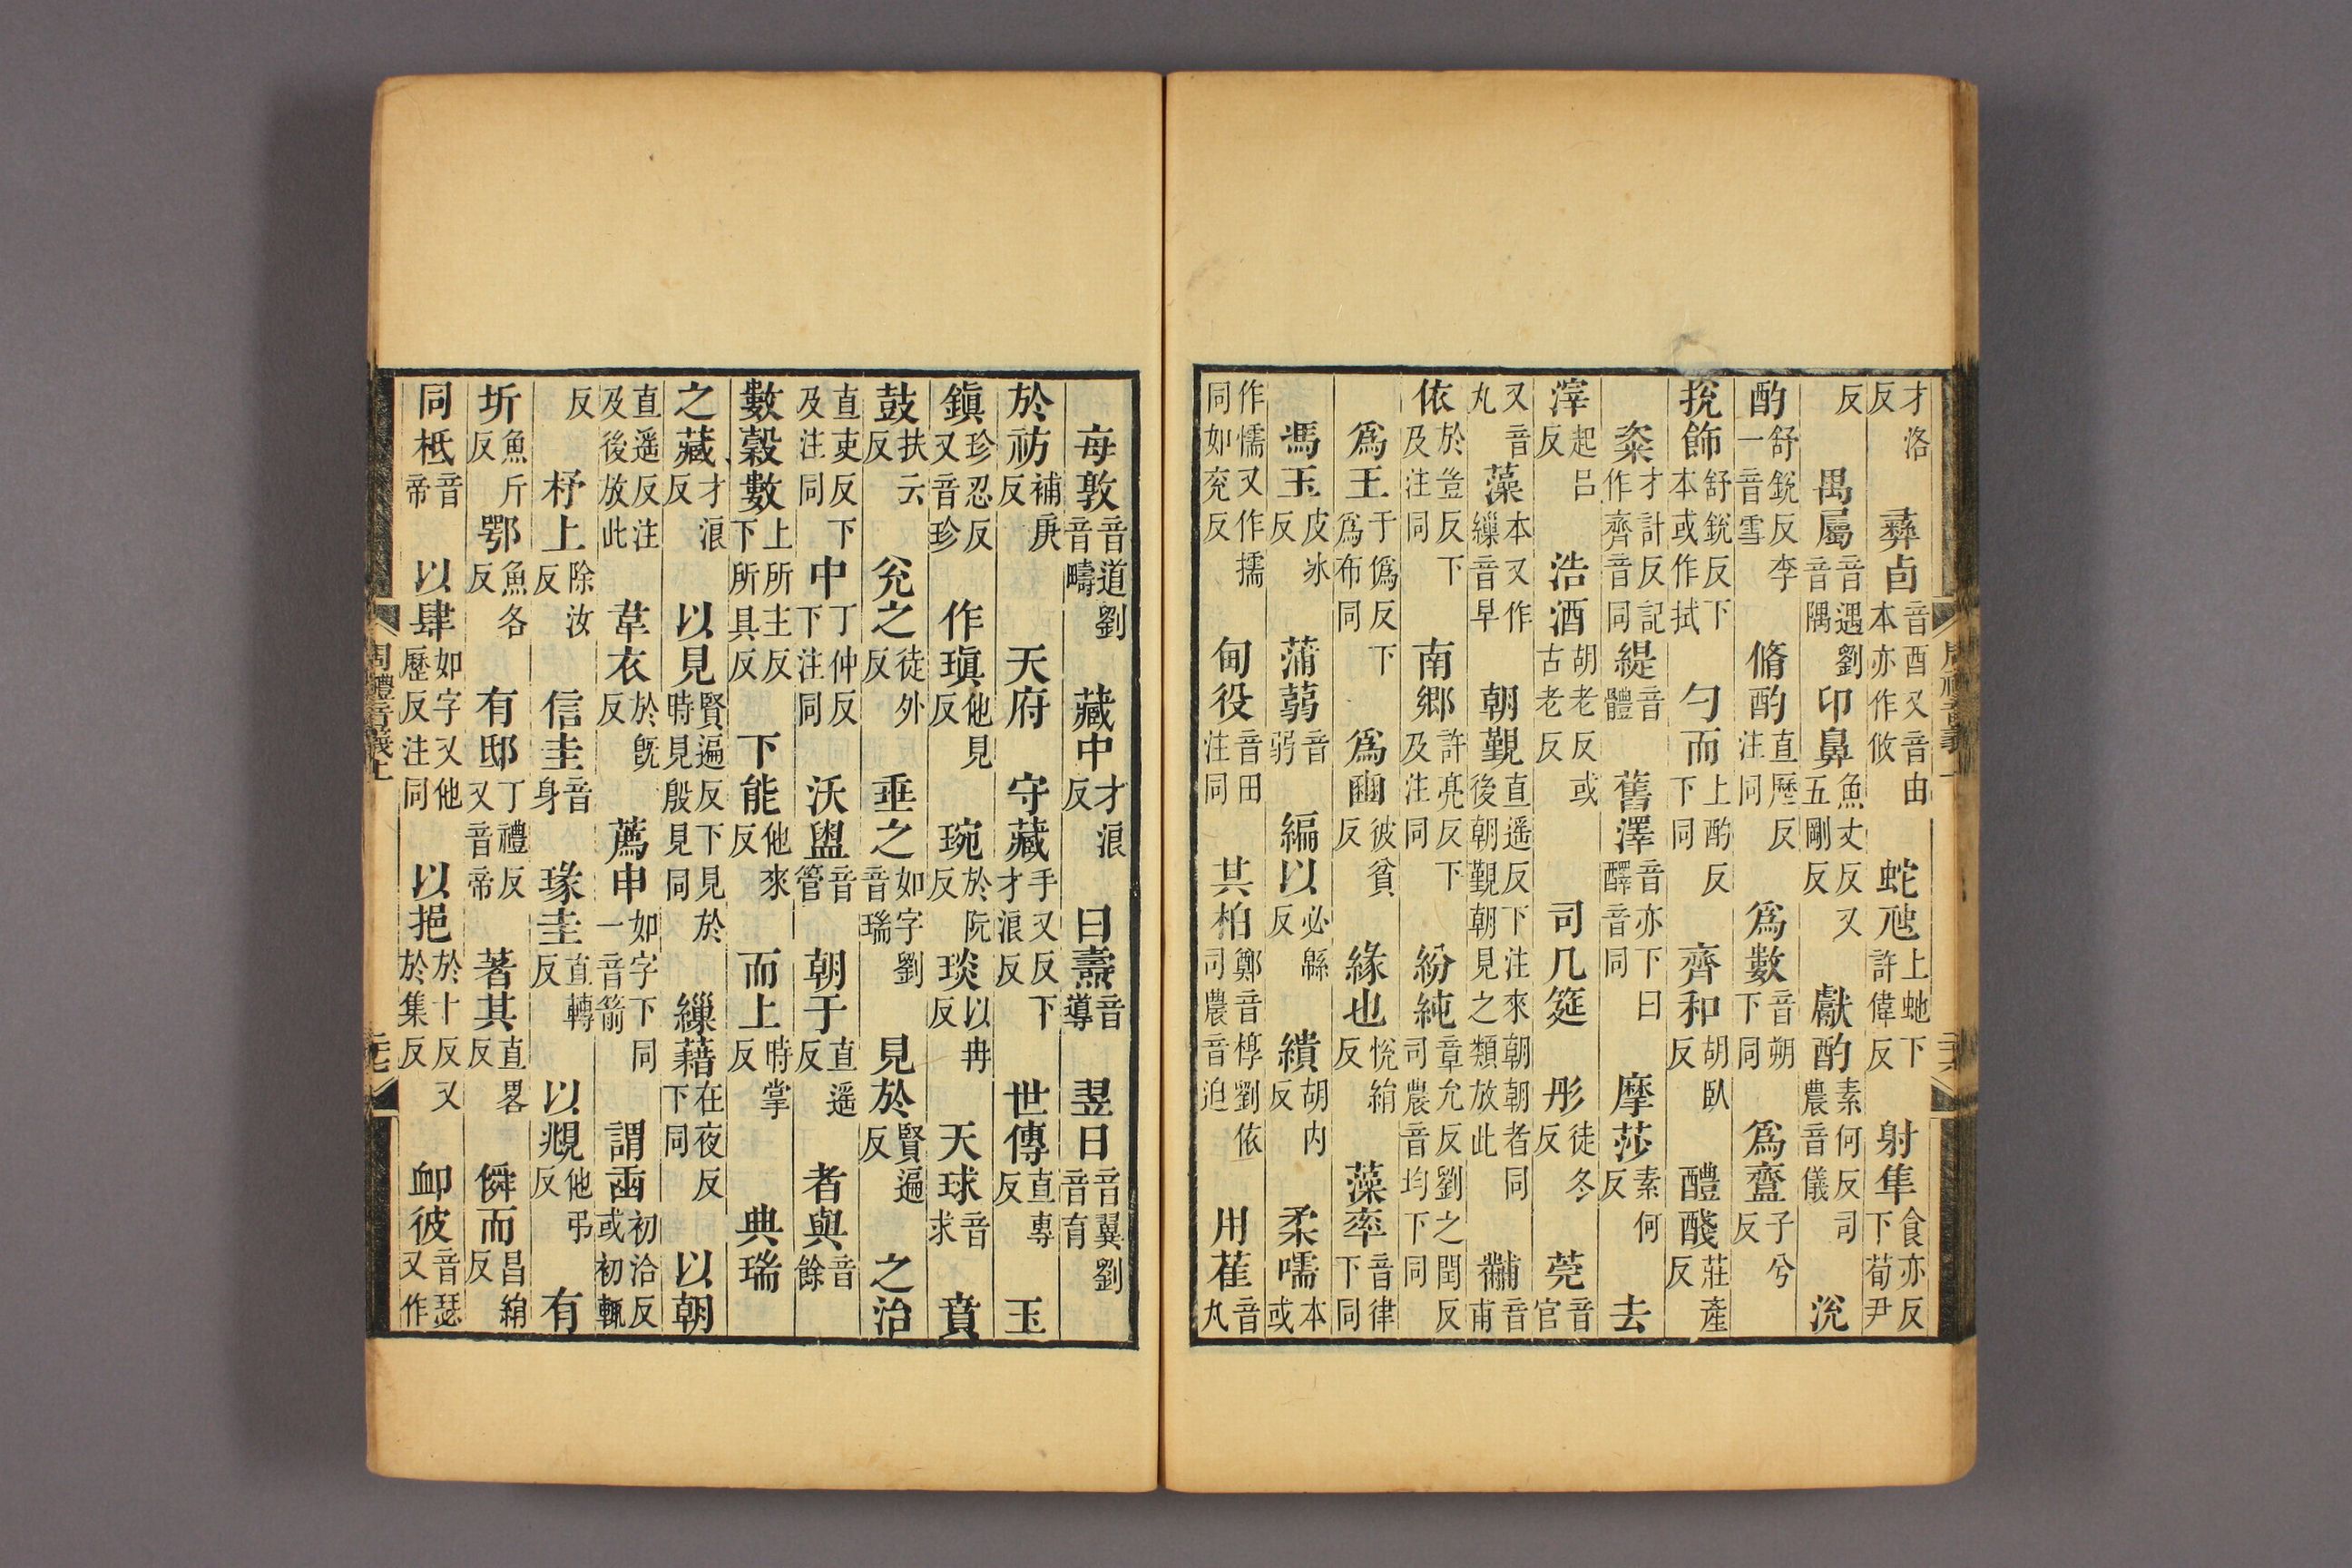 才洛反彝卣音酉又音由本亦作攸蛇虺上虵下許偉反射隼食亦反下荀尹
反禺屬音遇劉音隅卬鼻魚丈反又五剛反獻酌素何反司農音儀涗
酌舒銳反李一音雪脩酌直歷反注同爲數音朔下同爲齍子兮反
挩飾舒銳反下本或作拭勺而上酌反下同齊和胡臥反醴醆莊產反
粢才計反記作齊音同緹音體舊澤音亦下曰醳音同摩莎素何反去
滓起呂反浩酒胡老反或古老反司几筵彤徒冬反莞音官
又音丸藻本又作繅音早朝覲直遥反下注來朝朝者同後朝覲朝見之類放此黼音甫
依於豈反下及注同南鄉許亮反下及注同紛純章允反劉之閏反司農音均下同
爲王于僞反下爲布同爲豳彼貧反緣也悅絹反藻率音律下同
馮玉皮冰反蒲蒻音弱編以必緜反繢胡内反柔嚅本或
作懦又作擩同如兖反甸役音田注同其柏鄭音椁劉依司農音迫用萑音丸
每敦音道劉音疇藏中才浪反曰燾音導翌日音翼劉音育
於祊補庚反天府守藏手又反下才浪反世傳直專反玉
鎮珍忍反又音珍作瑱他見反琬於阮反琰以冉反天球音求賁
鼓扶云反兊之徒外反垂之如字劉音瑞見於賢遍反之治
直吏反下及注同中丁仲反下注同沃盥音管朝于直遥反者與音餘
數穀數上所主反下所具反下能他來反而上時掌反典瑞
之藏才浪反以見賢遍反下見於時見殷見同繅藉在夜反下同以朝
直遥反注及後放此韋衣於旣反薦申如字下同一音箭謂臿初洽反或初輒
反杼上除汝反信圭音身瑑圭直轉反以覜他弔反有
圻魚斤反鄂魚各反有邸丁禮反又音帝著其直畧反僢而昌絹反
同柢音帝以肆如字又他歷反注同以挹於十反又於集反卹彼音瑟又作
周禮音義上